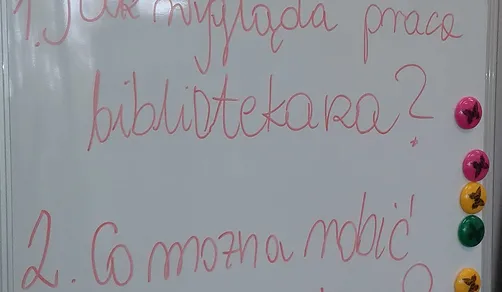 1. Jak wygląda praca
bibliotekara?
2. Co można robić
?